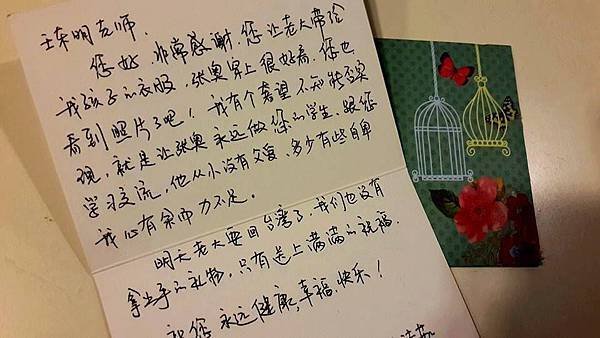 王东明老师.
您好,非常感谢,您让老大带给
我孩子的衣服,张奥穿上很好看,您也
看到照片了吧!我有个奢望不知能否实
现,就是让张奥永远做您的学生,跟您
学习交流,他从小没有父爱、多少有些自卑
我心有余而力不足。
明天老大要回台湾了,我们也没有
拿出手的礼物,只有送上满满的祝福.
祝您永远健康,幸福,快乐!